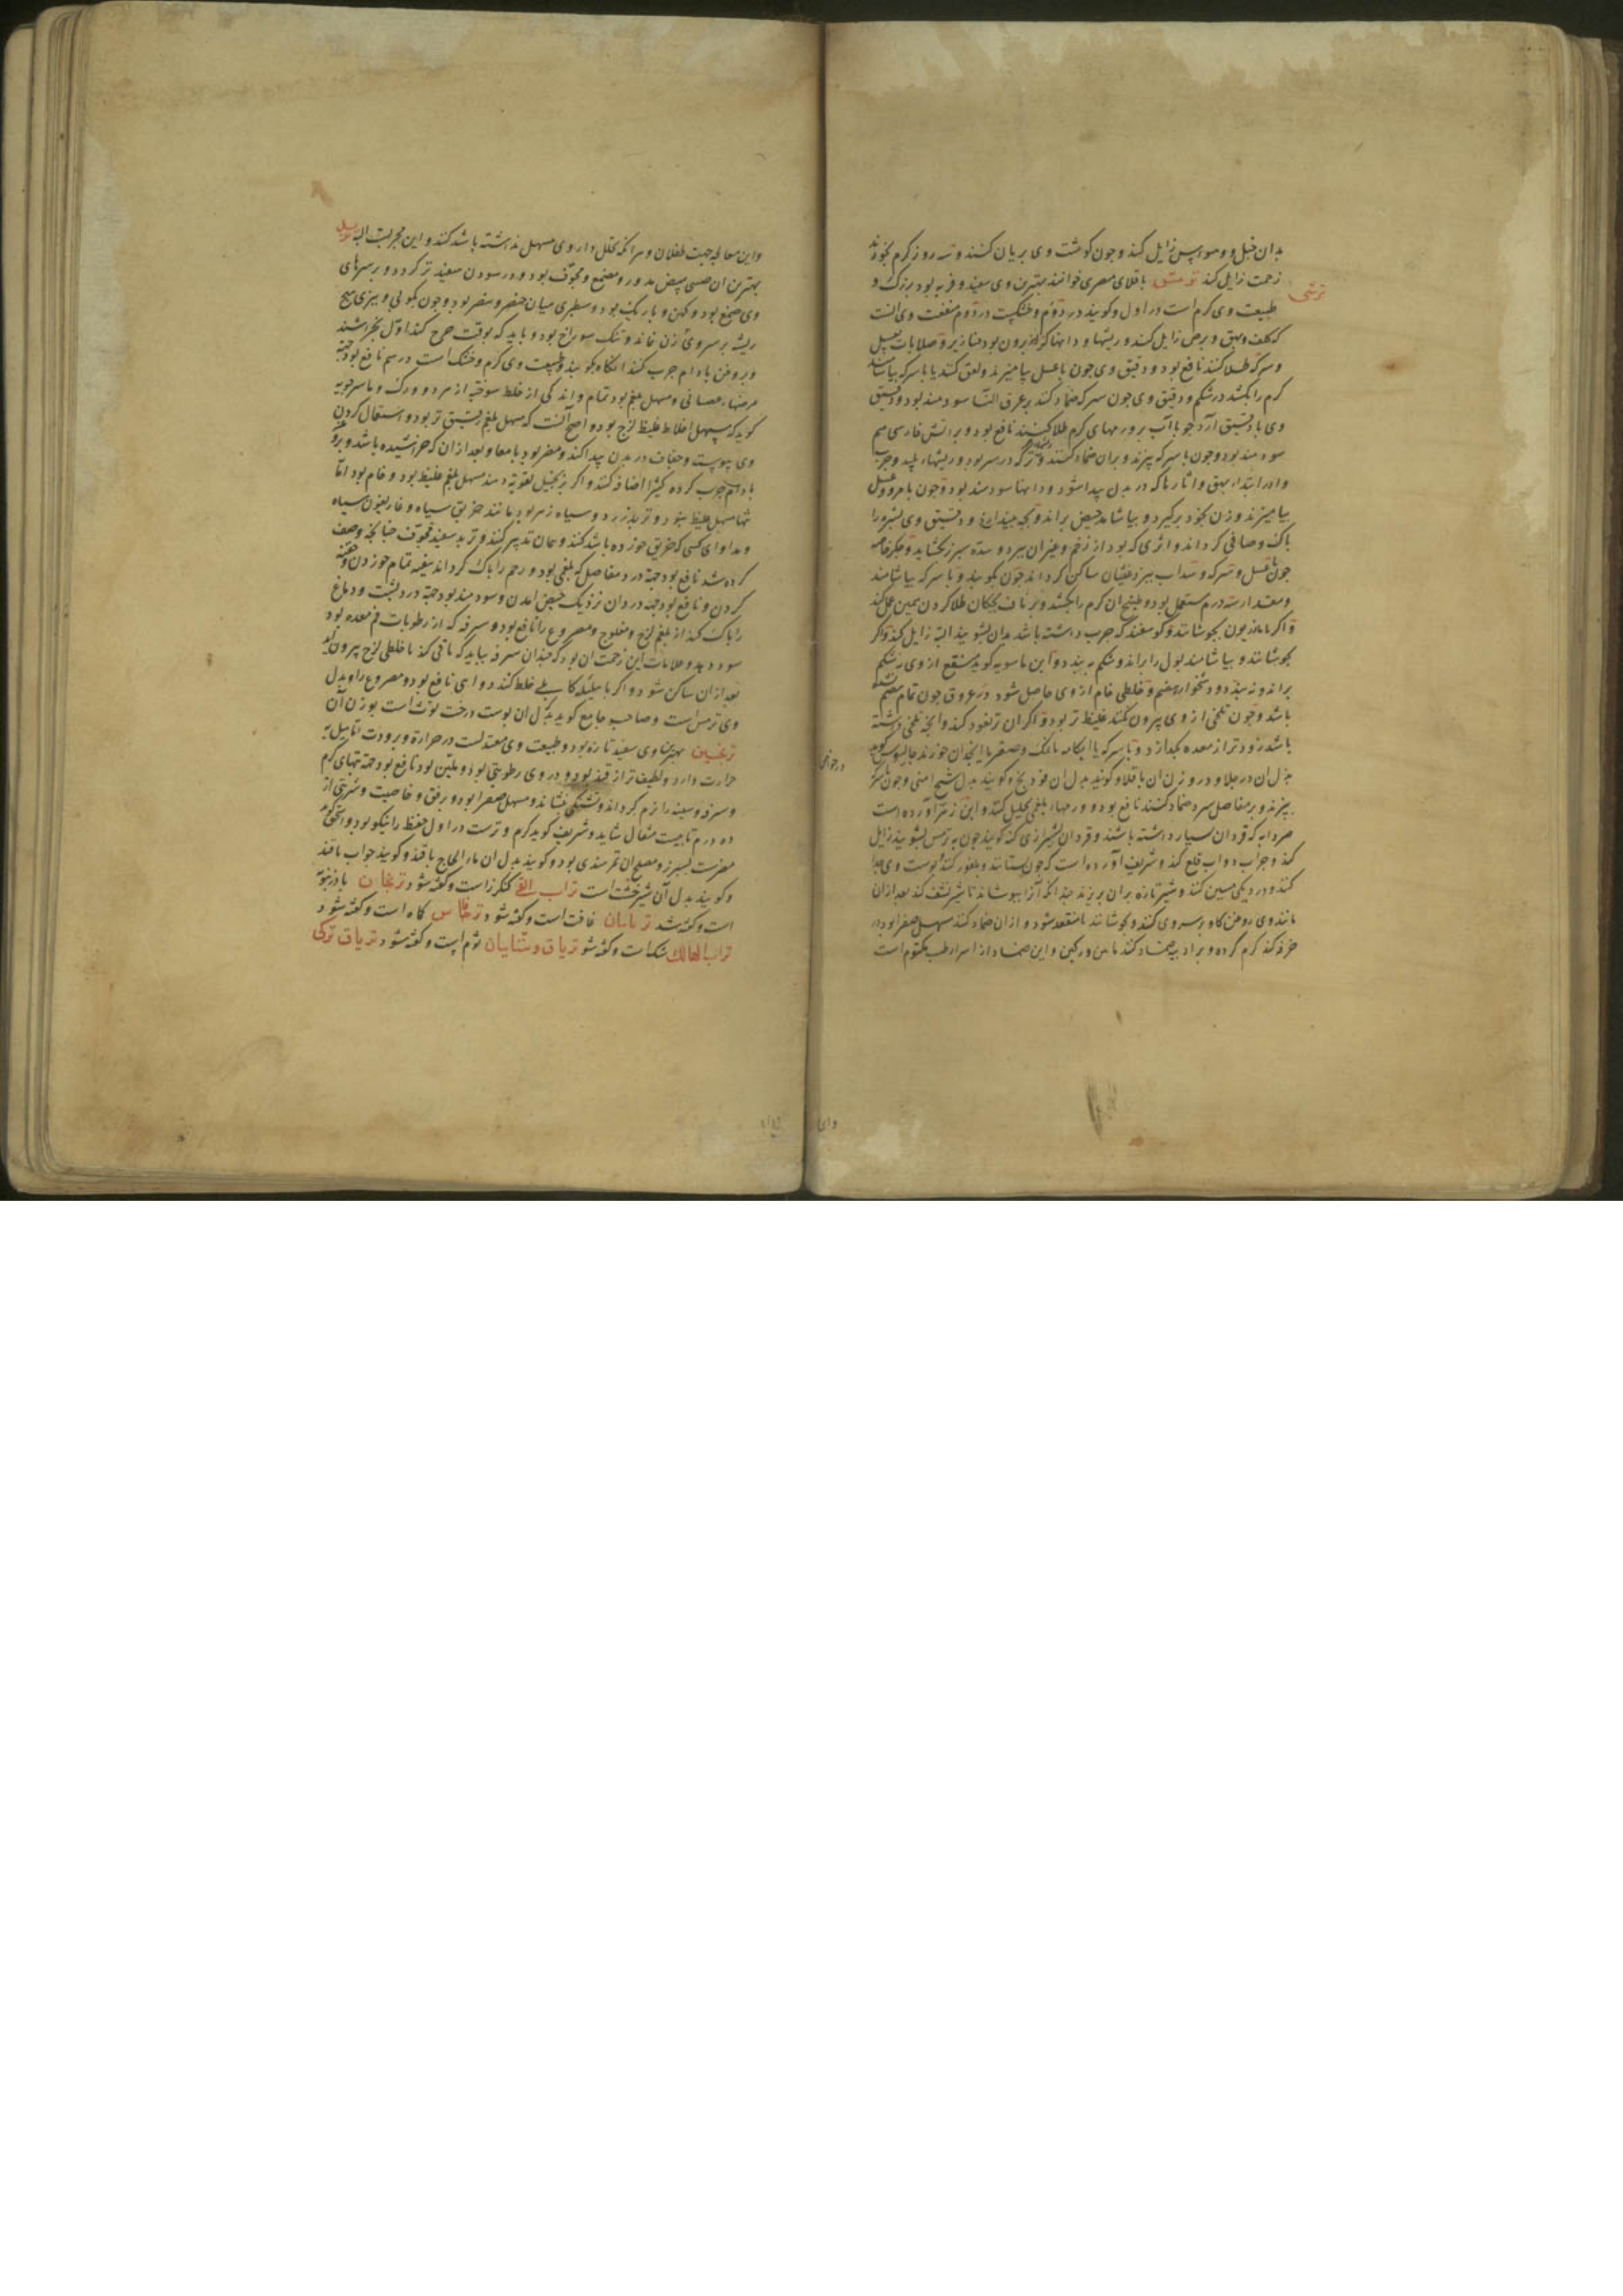 بدان خبل و وسواس زایل کند و چون کوشت وی بریان کنند و سه روز کرم بخورند
زحمت زایل کند ترمش باقلای مصری خوانند بهترین وی سفید و فربه بود بزرک و
ترمش
طبیعت وی کرم است در اول و کویند در دوم و خشکست در دوم منفعت وی آنست
که کلف و بهق و برص زایل کند و ریشها و دانها که از برون بود خنازیر و صلابات بعسل
و سرکه طلا کنند نافع بود و دقیق وی چون با عسل بیامیزند و لعق کنند یا با سرکه بیاشامند
کرم را بکشد در شکم و دقیق وی چون سرکه ضماد کنند بر عرق النسا سودمند بود و دقیق
وی با دقیق آرد جو با آب بر ورمهای کرم طلا کنند نافع بود و بر آتش فارسی هم
سودمند بود و چون با سرکه پزند و بران ضماد کنند که در سر بود و ریشهاء پلید و جرب
و در ابتداء بهق و اثارها که در بدن پیدا شود و دانها سودمند بود و چون با مر و عسل
بیامیزند و زن بخود برکیرد و بیاشامد حیض براند و بچه بیندازد و دقیق وی بشره را
پاک و صافی کرداند و اثری که بود از زخم و غیران ببرد و سده سپرز بکشاید و جکر خاصه
چون با عسل و سرکه و سداب پزند غثیان ساکن کرداند چون بکوبند و با سرکه بیاشامند
و مقدار سه درم مستعمل بود و طبیخ ان کرم را بکشد و بر ناف کودکان طلا کردن همین عمل کند
و اکر مازریون بجوشانند و کوسفند که جرب داشته باشد بدان بشویند البته زایل کند و اکر
بجوشانند و بیاشامند بول را براند و شکم به بندد و ابن ماسویه کوید منتفع از وی نه شکم
براند و نه بندد و دشخوار هضم و خلطی خام از وی حاصل شود در عروق چون تمام هضم نشده
باشد و چون تلخی از وی بیرون کنند غلیظ تر بود و اکر ان تر نفوذ کند و انچه تلخی داشته
باشد زودتر از معده بکذارد و با سرکه یا آبکامه با نمک و صعتر یا انجدان خورند جالینوس کوید
بدل ان در جلا وزن ان باقلا و کویند بدل ان فودنج و کویند بدل شیح ارمنی و چون با سرکه
بپزند و بر مفاصل سرد ضماد کنند نافع بود و ورمهاء بلغمی تحلیل کند و ابن زهر آورده است
هر دابه که قردان بسیار داشته باشد و قردان بشیرازی کنه کویند چون به ترمس بشویند زایل
کند و جراب دواب قلع کند و شریف آورده است که چون بستانند و بلغور کنند پوست وی جدا
کنند و در دیکی مسین کنند و شیر تازه بران بریزند چندانکه آنرا بپوشاند تا شیر نشف کند بعد از ان
مانند وی روغن کاو بر سر وی کنند و بجوشانند تا منعقد شود و از ان ضماد کنند مسهل صفرا بود در
خرقه کند کرم کرده و برادبیه ضماد کند تا من ورکین و این ضماد از اسرار طب مکتوم است
و این معالجه جهت طفلان و هر انکه تحمل داروی مسهل نداشته باشد کنند و این مجربست البه تربد
بهترین ان صینی سپید مدور و مصمغ و مجوف بود و در سودن سفیدتر کردد و بر سرهای
وی صمغ بود و کهن و باریک بود و سطبری میان خنصر و بنصر بود و چون بکوبی و بیزی هیچ
ریشه بر سر وی زن نماند و تنک سوراخ بود و باید که بوقت خرج کند اول بخراشند
و بروغن بادام چرب کنند انکاه بکوبند و طبیعت وی کرم و خشک است در سیم نافع بود جهت
مرضهاء عصبانی و مسهل بلغم بود تمام و اندکی از خلط سوخته از سر و ورک و ماسرجویه
کوید که مسهل اخلاط غلیظ لزج بود و اصح آنست که مسهل بلغم رقیق تر بود و استعمال کردن
وی یبوست و جفاف در بدن پیدا کند و مضر بود بامعا و بعد از ان که خراشیده باشد و بروغن
بادام چرب کرده کثیرا اضافه کنند و اکر زنجبیل تقویت دهند مسهل بلغم غلیظ بود و خام بود اما
تنها مسهل غلیظ نبود و تربد زرد و سیاه زهر بود مانند خربق سیاه و غاریقون سیاه
و مداوای کسی که خربق خورده باشد کنند و همان تدبیر کنند و تربد سفید مجوف چنانچه وصف
کرده شد نافع بود جهت درد مفاصل که بلغمی بود و رحم را پاک کرداند بقیه تمام خوردن و حقنه
کردن و نافع بود جهت دردان نزدیک حیض آمدن و سودمند بود جهت درد پشت و دماغ
را پاک کند از بلغم لزج و مفلوج و مصروع را نافع بود و سرفه که از رطوبات فم معده بود
سود دهد و علامات این زحمت ان بود که چندان سرفه بیاید که تا قی کند تا خلطی لزج بیرون آید
بعد از ان ساکن شود و اکر با هلیله کابلی خلط کنند دوای نافع بود و مصروع را و بدل
وی ترمس است و صاحب جامع کوید بدل ان پوست درخت توت است بوزن آن
ترنجبین بهترین وی سفید تازه بود و طبیعت وی معتدلست در حرارت و برودت تا میل به
حرارت دارد و لطیف تر از قند بود و در وی رطوبتی بود و ملین بود نافع بود جهت تبهای کرم
و سرفه و سینه را نرم کرداند و تشنکی بنشاند و مسهل صفرا بود و برفق و خاصیت و شربتی از
ده درم تا بیست مثقال شاید و شریف کوید کرم و ترست در اول حفظ را نیکو بود و اسحق کوید
مضرست بسپرز و مصلح ان تمر هندی بود و کویند بدل ان ماء الحاج با قند و کویند جواب با قند
و کویند بدل آن شیرخشت است تراب القی کنکرزد است و کفته شود ترنجان بادرنبویه
است و کفته شد ترباسان غافت است و کفته شود کاه است و کفته شود
تراب الهالک شک است و کفته شود تریاق دشتابیان ثوم است و کفته شود تریاق ترکی